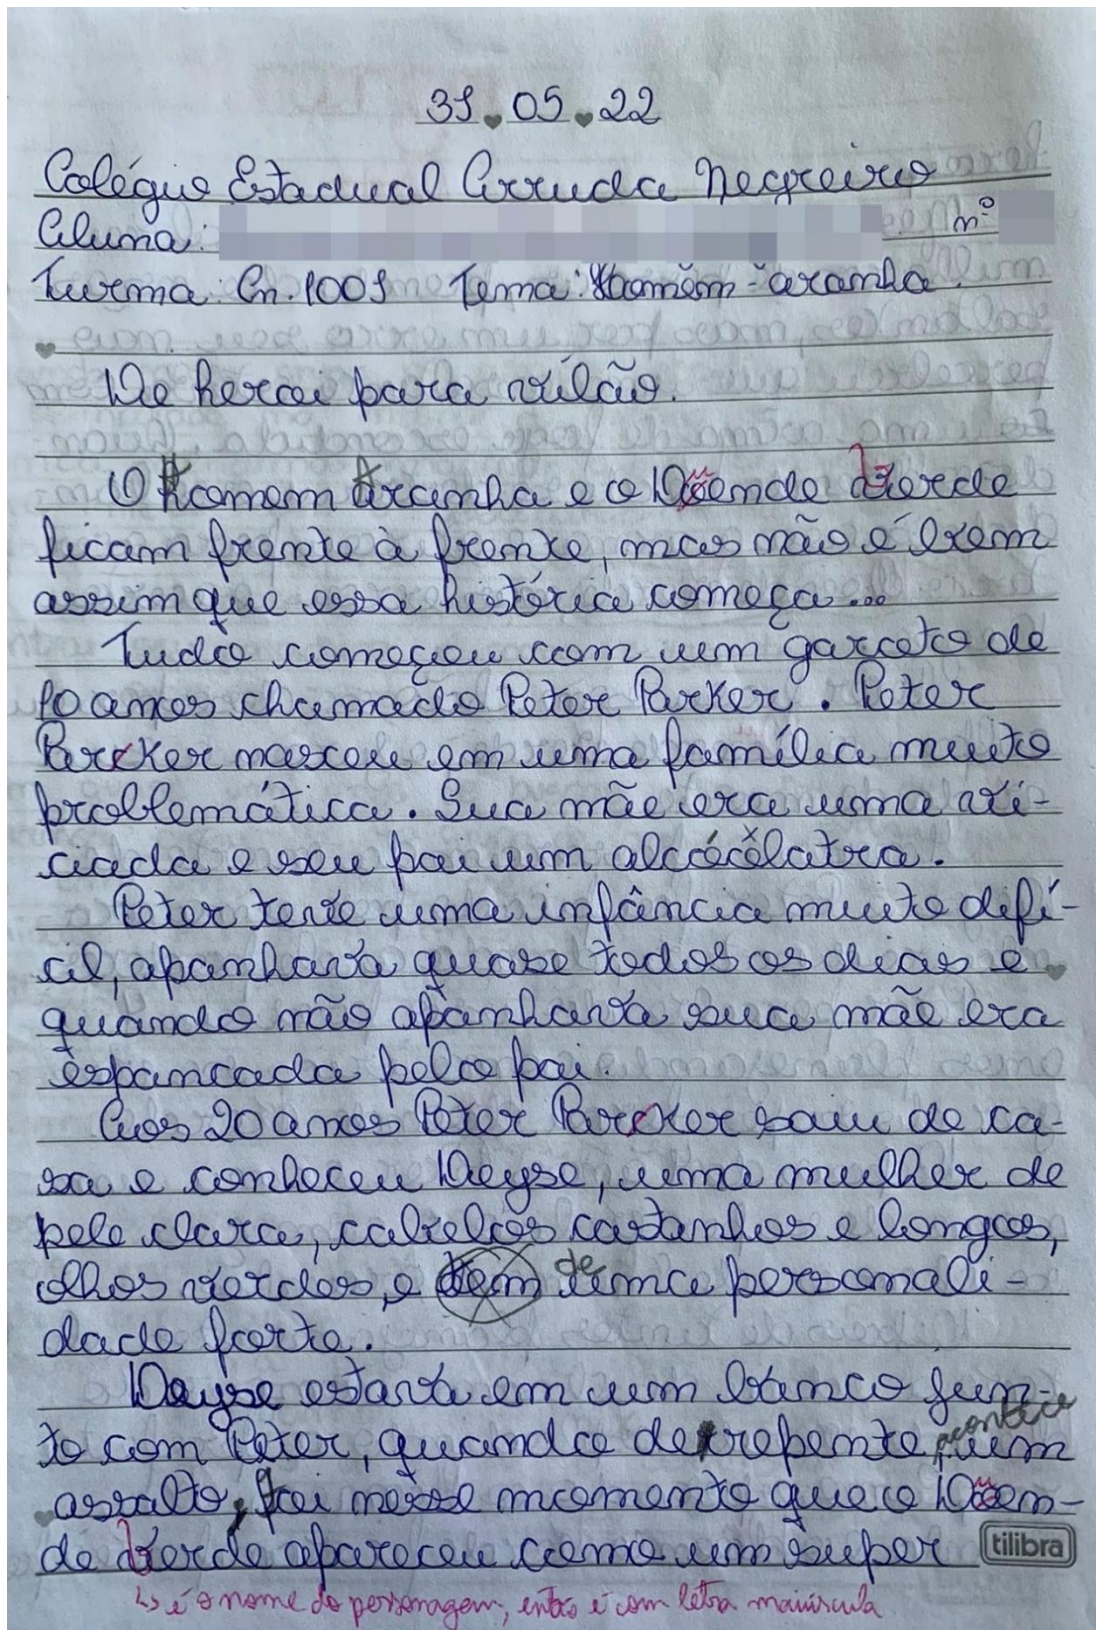 31.05.22
Colégio Estadual Arruda Negreiro
Aluna: nº
Turma: Cn. 1001 Tema: Homem-aranha.
De heroi para vilão.
O Homem Aranha e o Duende Verde
ficam frente à frente, mas não é bem
assim que essa história começa...
Tudo começou com um garoto de
10 anos chamado Peter Parker. Peter
Parker nasceu em uma família muito
problemática. Sua mãe era uma vi-
ciada e seu pai um alcoólatra.
Peter teve uma infância muito difí-
cil, apanhava quase todos os dias e
quando não apanhava sua mãe era
espancada pelo pai.
Aos 20 anos Peter Parker saiu de ca-
sa e conheceu Deyse, uma mulher de
pele clara, cabelos castanhos e longos,
olhos verdes, e tem de uma personali-
dade forte.
Deyse estava em um banco jun-
to com Peter, quando de repente, acontece um
assalto, foi nesse momento que o Duen-
de Verde apareceu como um super
tilibra
↳ é o nome do personagem, então é com letra maiúscula